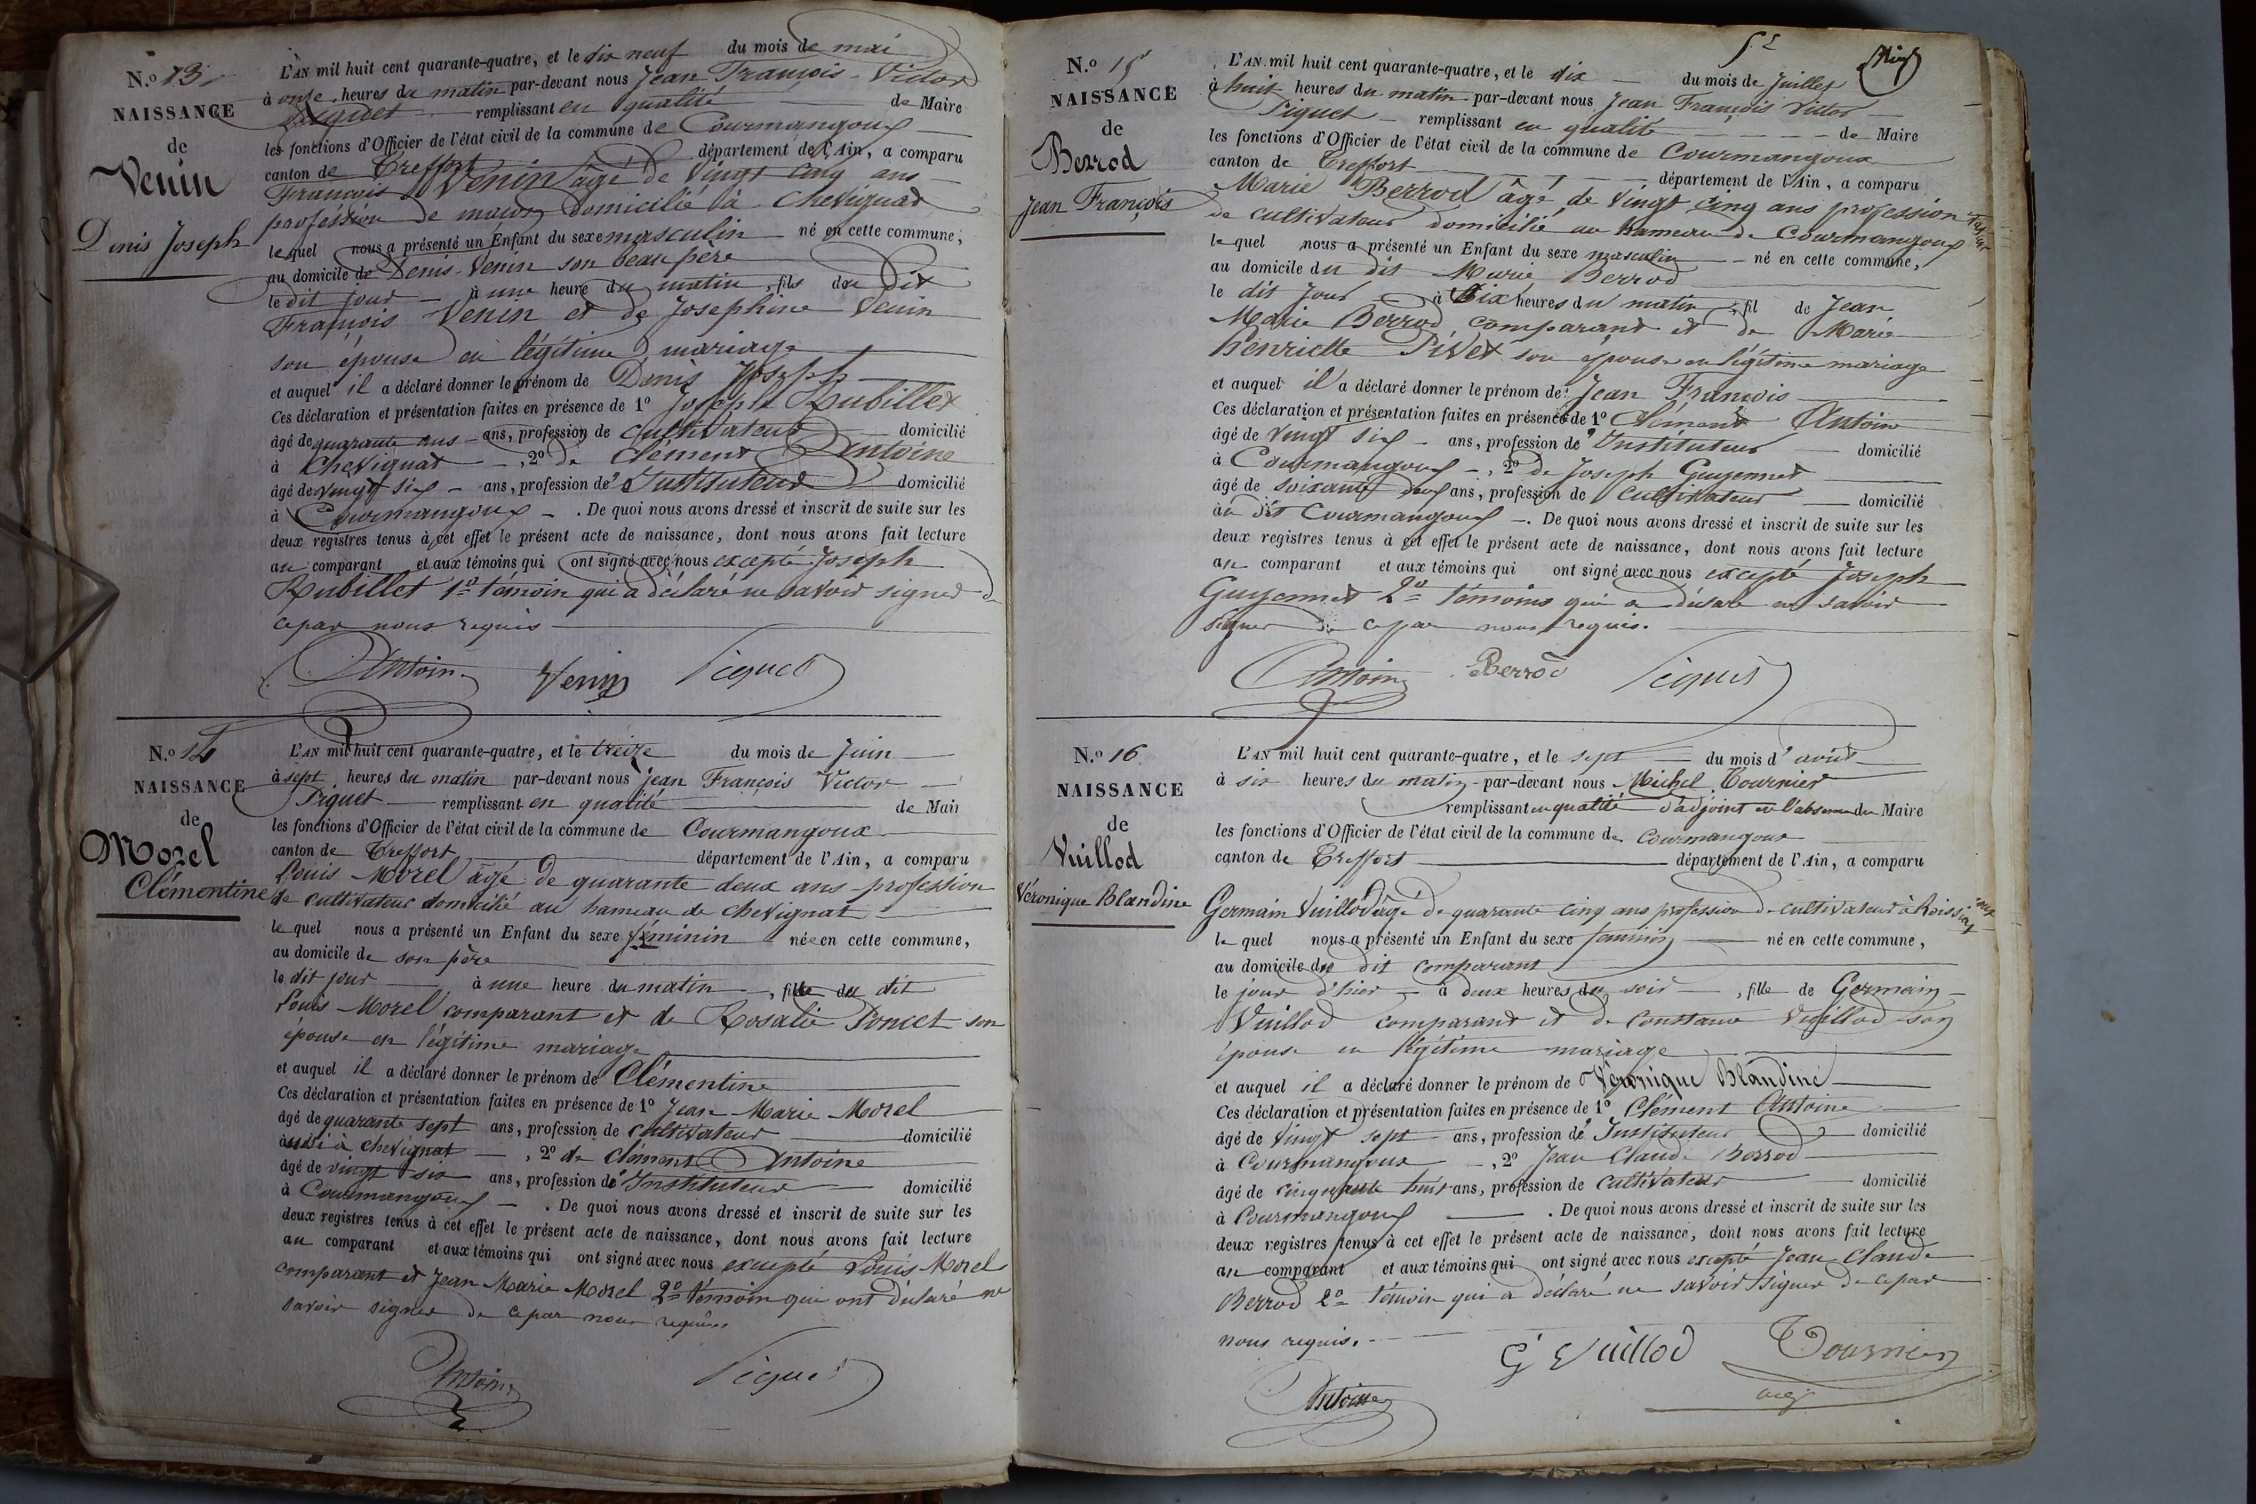 N.o 13
NAISSANCE
de
Venin
Denis Joseph
L'AN mil huit cent quarante-quatre, et le dix neuf du mois de mai
à onze heures du matin par-devant nous Jean François Victor
Piquet remplissant en qualité de Maire
les fonctions d'Officier de l'état civil de la commune de Courmangoux
canton de Treffort département de l'Ain, a comparu
François Venin âgé de vingt cinq ans
profession de maçon domicilié à Chevignat
le quel nous a présenté un Enfant du sexe masculin né en cette commune,
au domicile de Denis Venin son beau père
le dit jour à une heure du matin, fils du dit
François Venin et de Josephine Venin
son épouse en légitime mariage
et auquel il a déclaré donner le prénom de Denis Joseph
Ces déclaration et présentation faites en présence de 1o Joseph Rubillet
âgé de quarante ans ans, profession de cultivateur domicilié
à Chevignat, 2o de Clément Antoine
âgé de vingt six ans, profession d' Instituteur domicilié
à Courmangoux. De quoi nous avons dressé et inscrit de suite sur les
deux registres tenus à cet effet le présent acte de naissance, dont nous avons fait lecture
au comparant et aux témoins qui ont signé avec nous excepté Joseph
Rubillet 1er témoin qui a déclaré ne savoir signer de
ce par nous requis
Antoine Venin Piquet
N.o 14
NAISSANCE
de
Morel
Clémentine
L'AN mil huit cent quarante-quatre, et le treize du mois de Juin
à sept heures du matin par-devant nous Jean François Victor
Piquet remplissant en qualité de Mair
les fonctions d'Officier de l'état civil de la commune de Courmangoux
canton de Treffort département de l'Ain, a comparu
Louis Morel âgé de quarante deux ans profession
de cultivateur domicilié au hameau de Chevignat
le quel nous a présenté un Enfant du sexe féminin née en cette commune,
au domicile de son père
le dit jour à une heure du matin, fille du dit
Louis Morel comparant et de Rosalie Poncet son
épouse en légitime mariage
et auquel il a déclaré donner le prénom de Clémentine
Ces déclaration et présentation faites en présence de 1o Jean Marie Morel
âgé de quarante sept ans, profession de cultivateur domicilié
aussi à Chevignat, 2o de Clément Antoine
âgé de vingt six ans, profession d' Instituteur domicilié
à Courmangoux. De quoi nous avons dressé et inscrit de suite sur les
deux registres tenus à cet effet le présent acte de naissance, dont nous avons fait lecture
au comparant et aux témoins qui ont signé avec nous excepté Louis Morel
comparant et Jean Marie Morel 2o témoin qui ont déclaré ne
savoir signer de ce par nous requis
Antoine Piquet
N.o 15
NAISSANCE
de
Berrod
Jean François
L'AN mil huit cent quarante-quatre, et le dix du mois de Juillet
à huit heures du matin par-devant nous Jean François Victor
Piquet remplissant en qualité de Maire
les fonctions d'Officier de l'état civil de la commune de Courmangoux
canton de Treffort département de l'Ain, a comparu
Marie Berrod âgé de vingt cinq ans profession
de cultivateur domicilié au hameau de Courmangoux
le quel nous a présenté un Enfant du sexe masculin né en cette commune,
au domicile du dit Marie Berrod
le dit jour à six heures du matin, fil de Jean
Marie Berrod comparant et de Marie
henriette Pivet son épouse en légitime mariage
et auquel il a déclaré donner le prénom de Jean François
Ces déclaration et présentation faites en présence de 1o Clément Antoine
âgé de vingt six ans, profession d' Instituteur domicilié
à Courmangoux, 2o de Joseph Guyennet
âgé de soixante deux ans, profession de cultivateur domicilié
au dit Courmangoux. De quoi nous avons dressé et inscrit de suite sur les
deux registres tenus à cet effet le présent acte de naissance, dont nous avons fait lecture
au comparant et aux témoins qui ont signé avec nous excepté Joseph
Guyennet 2o témoins qui a déclaré ne savoir
signer de ce par nous requis.
Antoine Berrod Piquet
N.o 16
NAISSANCE
de
Vuillod
Véronique Blandine
L'AN mil huit cent quarante-quatre, et le sept du mois d'août
à six heures du matin par-devant nous Michel Tournier
remplissant en qualité d'adjoint en l'absence du Maire
les fonctions d'Officier de l'état civil de la commune de Courmangoux
canton de Treffort département de l'Ain, a comparu
Germain Vuillod âgé de quarante cinq ans profession de cultivateur à Roissiat
le quel nous a présenté un Enfant du sexe féminin né en cette commune,
au domicile du dit comparant
le jour d'hier à deux heures du soir, fille de Germain
Vuillod comparant et de Constance Vuillod son
épouse en légitime mariage
et auquel il a déclaré donner le prénom de Véronique Blandine
Ces déclaration et présentation faites en présence de 1o Clément Antoine
âgé de vingt sept ans, profession d' Instituteur domicilié
à Courmangoux, 2o Jean Claude Berrod
âgé de cinquante huit ans, profession de cultivateur domicilié
à Courmangoux. De quoi nous avons dressé et inscrit de suite sur les
deux registres tenus à cet effet le présent acte de naissance, dont nous avons fait lecture
au comparant et aux témoins qui ont signé avec nous excepté Jean Claude
Berrod 2o témoin qui a déclaré ne savoir signer de ce par
nous requis.
G Vuillod Tournier
adj
Antoine